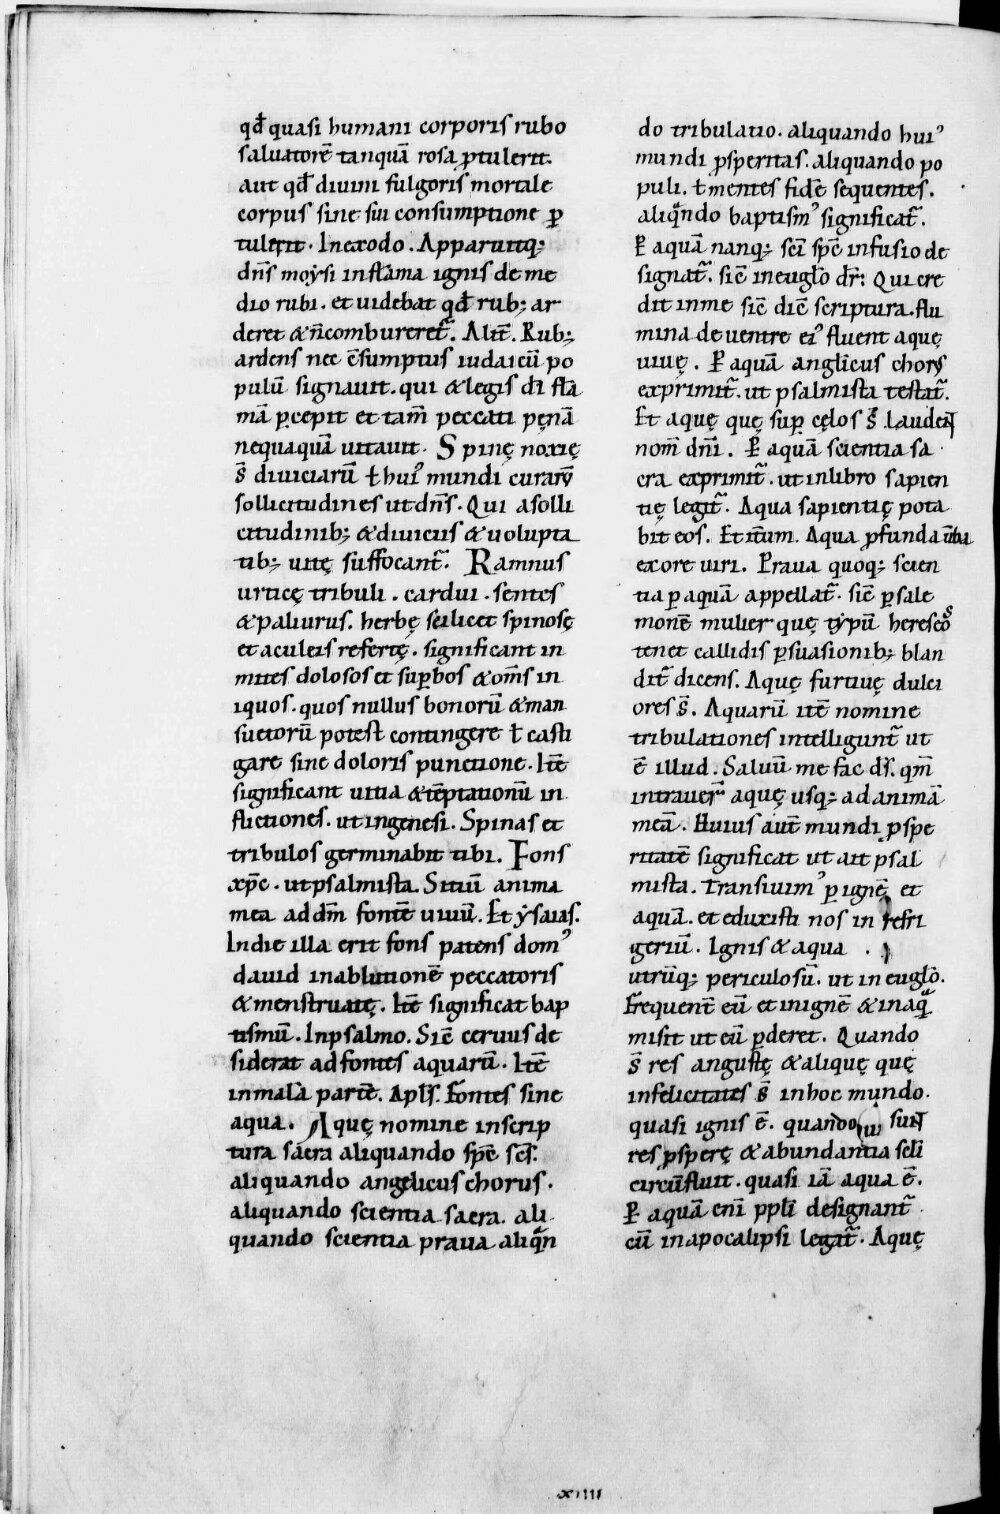 qđ quasi humani corporis rubo
saluatorē tanquā rosa ꝓtulerit.
aut qđ diuini fulgoris mortale
corpus sine sui consumptione ꝑ
tulerit. In exodo. Apparuitq;
dn̄s moẏsi in flāma ignis de me
dio rubi. et uidebat qđ rub; ar
deret & n̄ combureret᷑. Alit̄. Rub;
ardens nec c̄sumptus iudaicū po
pulū signauit. qui & legis dī flā
mā ꝑcepit et tam̄ peccati pęnā
nequaquā uitauit. Spinę noxię
s̄ diuiciarū ł hui᾽ mundi curarꝝ
sollicitudines ut dn̄s. Qui a solli
citudinib; & diuiciis & uolupta
tib; uitę suffocant᷑. Ramnus
urticę tribuli. cardui. sentes
& paliurus. herbę scilicet spinosę
et aculeis refertę. significant in
mites dolosos et suꝑbos & om̄s in
iquos. quos nullus bonorū & man
suetorū potest contingere ł casti
gare sine doloris punctione. Itē
significant uitia & tēptationū in
flictiones. ut in genesi. Spinas et
tribulos germinabit tibi. Fons
xp̄c. ut psalmista. Sitiuī anima
mea ad dm̄ fontē uiuū. Et ẏsaias.
In die illa erit fons patens dom᾽
dauid in ablutionē peccatoris
& menstruatę. Itē significat bap
tismū. In psalmo. Sic̄ ceruus de
siderat ad fontes aquarū. Itē
in mala partē. Apls̄. Fontes sine
aqua. Aquę nomine in scrip
tura sacra aliquando sp̄c sc̄s.
aliquando angelicus chorus.
aliquando scientia sacra. ali
quando scientia praua aliqͣn
do tribulatio. aliquando hui᾽
mundi ꝓsperitas. aliquando po
puli. ł mentes fidē sequentes.
aliqͣndo baptism᾽ significat᷑.
P̲ aquā nanq; sc̄i sp̄c infusio de
signat᷑. sic̄ in euglo dr̄: Qui cre
dit in me sic̄ dic̄ scriptura. flu
mina de uentre ei᾽ fluent aquę
uiuę. P̲ aquā anglicus chorꝰ
exprimit᷑. ut psalmista testat᷑.
Et aquę quę suꝑ cęlos s̄. laudent
nom̄ dn̄i. P̲ aquā scientia sa
cra exprimit᷑. ut in libro sapien
tię legit᷑. Aqua sapientię pota
bit eos. Et it̄um. Aqua ꝓfunda ūba
ex ore uiri. Praua quoq; scien
tia ꝑ aquā appellat᷑. sic̄ ꝑ sale
monē mulier quę tẏpū hereseoͦs
tenet callidis ꝑsuasionib; blan
dit᷑ dicens. Aquę furtiuę dulci
ores s̄. Aquarū itē nomine
tribulationes intelligunt᷑ ut
ē illud. Saluū me fac ds̄. qm̄
intrauer᷑ aquę usq; ad animā
meā. Huius aut̄ mundi ꝓspe
ritatē significat ut ait psal
mista. Transiuim᾽ ꝑ ignē et
aquā. et eduxisti nos in refri
geriū. Ignis & aqua
utrūq; periculosū. ut in euglo.
Frequent̄ eū et in ignē & in aqͣ
misit ut eū ꝑderet. Quando
s̄ res angustę & aliquę quę
infelicitates s̄ in hoc mundo.
quasi ignis ē. quando sunt
res ꝓsperę & abundantia seli
circūfluit. quasi iā aqua ē.
P̲ aquā eni ppl̄i designant᷑
cū in apocalipsi legat᷑. Aquę
xiiii